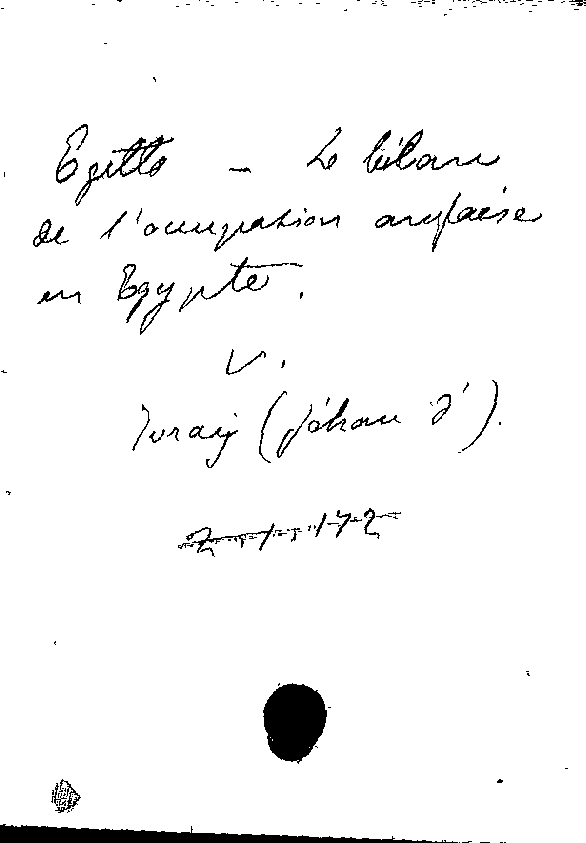 Egitto - Le bilan
de l'occupation anglaise
en Egypte.
V.
Ivray (Jéhan d').
Z.1.172